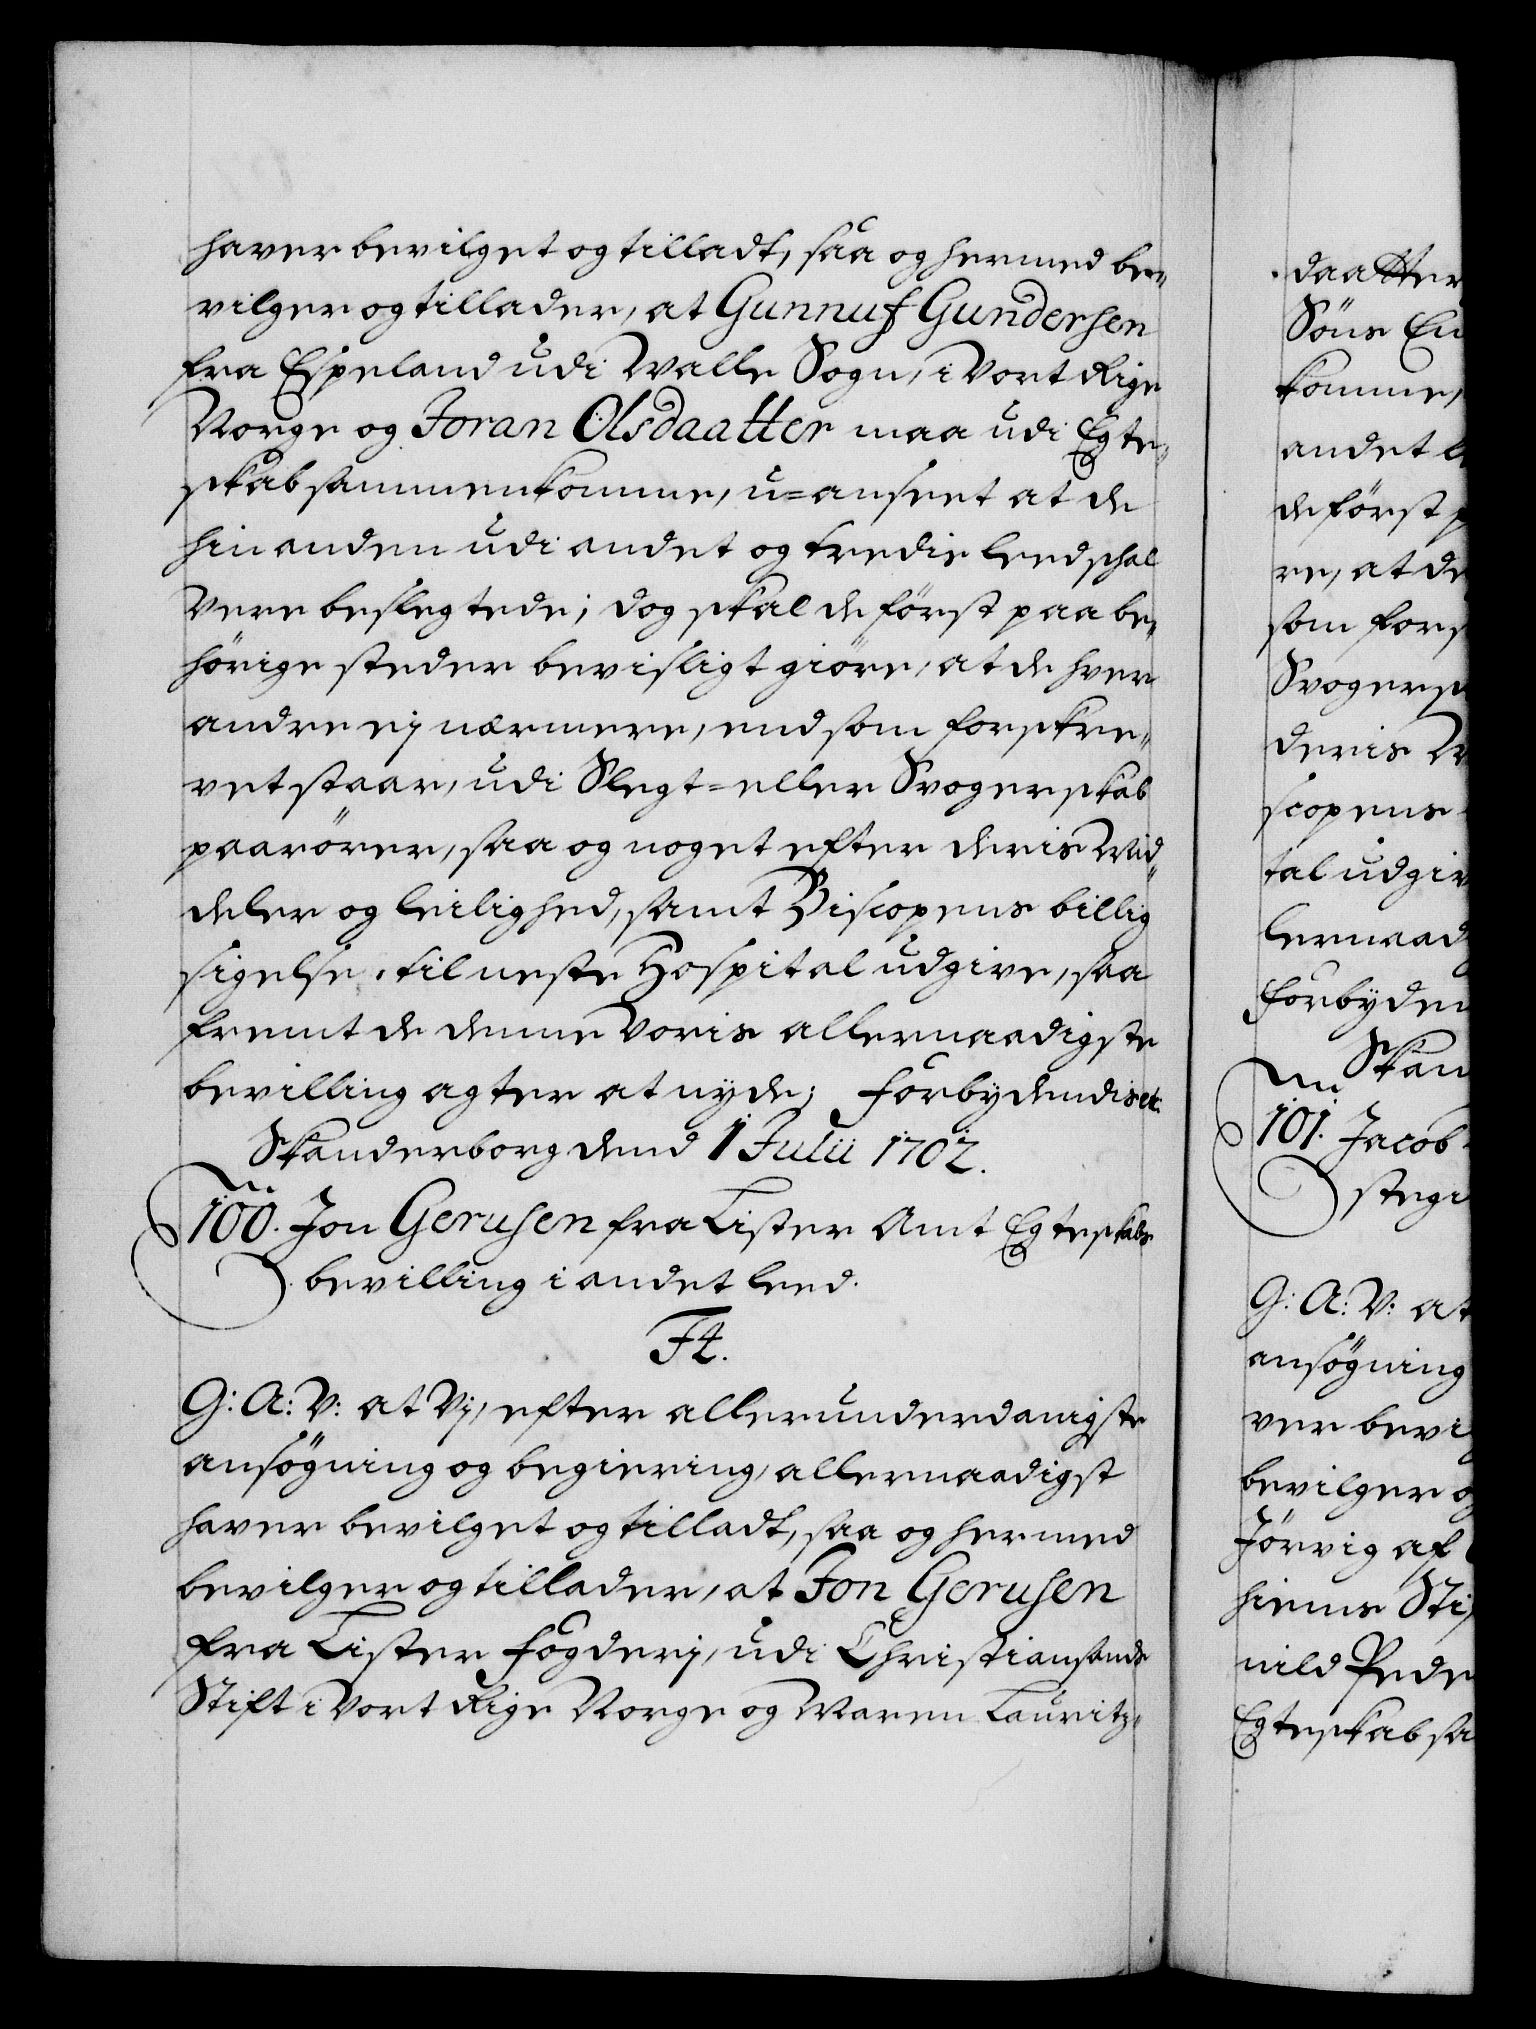 haver bevilget og tilladt, saa og hermed be„
vilger og tillader, at Gunnuf Gundersen
fra Espeland udi Walle Sogn, i Vort Rige
Norge og Joran Olsdaatter maa udi Egte„
skab sammenkomme, u=anseet at de
hinanden udi andet og tredie leed schal
Vere beslegtede; dog skal de först paa be„
hörige steder bevisligt giöre, at de hver
andre ej nærmere, end som forskre„
vet staar, udi Slegt= eller Svogerskab
paarörer, saa og noget efter deris Mid„
deler og leilighed, samt Biscopens billig
sigelse, til neste Hospital udgive, saa
fremt de denne Voris allernaadigste
bevilling agter at nyde; Forbydendis etc.
Skanderborg dend 1 Julii 1702.
100. Jon Gerusen fra Lister Amt Egteskabs
bevilling i andet leed.
F4.
G: A: V: at Vj, efter allerunderdanigste
ansögning og begiering, allernaadigst
haver bevilget og tilladt, saa og hermed
bevilger og tillader, at Jon Gerusen
fra Lister fogderj, udi Christiansands
Stift i Vort Rige Norge og Maren Lauritz„
daatter
Söns En
komme,
andet le
de först p
re, at de
som fors
Svogersk
deris M
scopens
tal udgiv
lernaad
Forbyden
Skan
101. Jacob
stegi
G: A: V: at
ansögning
ver bevi
bevilger o
Jörvig af
hiems Sti
nild Pede
Egteskab sa